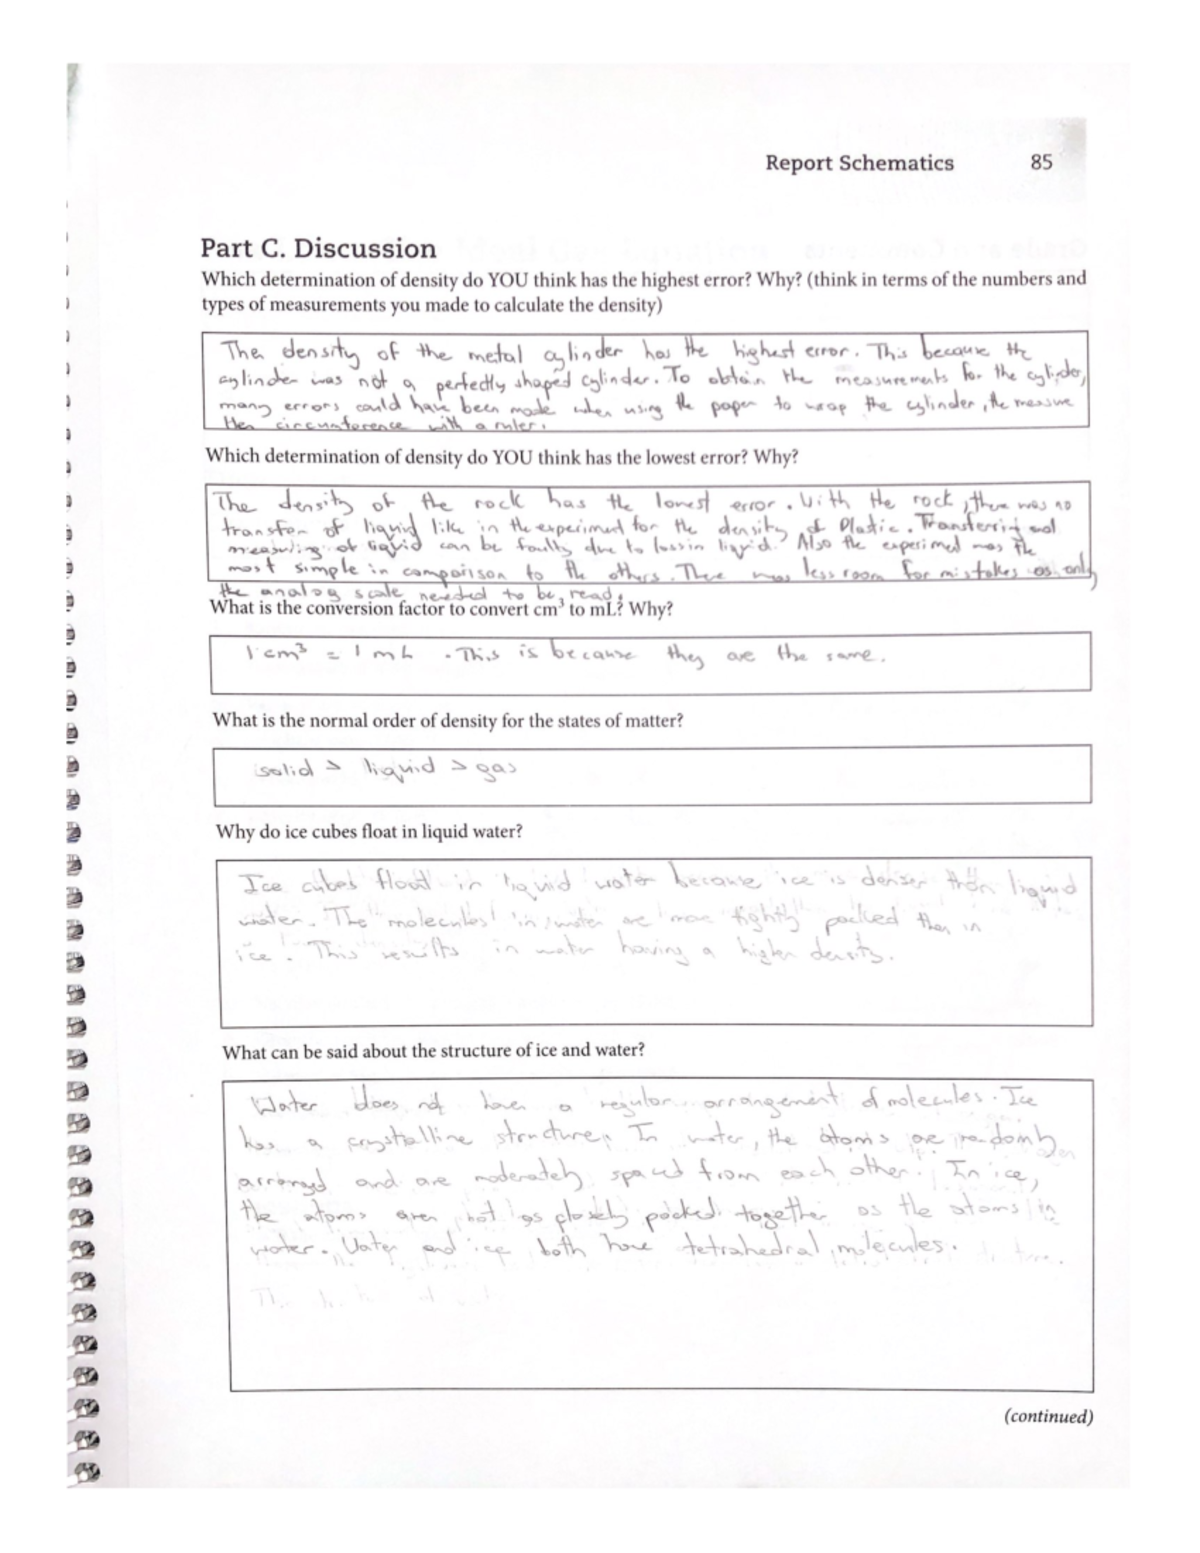 Report Schematics 85
Part C. Discussion
Which determination of density do YOU think has the highest error? Why? (think in terms of the numbers and
types of measurements you made to calculate the density)
The density of the metal cylinder has the highest error. This because the
cylinder was not a perfectly shaped cylinder. To obtain the measurements for the cylinder,
many errors could have been made when using the paper to wrap the cylinder, the measure
the circumference with a ruler.
Which determination of density do YOU think has the lowest error? Why?
The density of the rock has the lowest error. With the rock, there was no
transfer of liquid like in the experiment for the density of Plastic. Transferring and
measuring of liquid can be faulty due to loss in liquid. Also the experiment was the
most simple in comparison to the others. There was less room for mistakes as only
the analog scale needed to be read.
What is the conversion factor to convert cm³ to mL? Why?
1 cm³ = 1 mL . This is because they are the same.
What is the normal order of density for the states of matter?
solid > liquid > gas
Why do ice cubes float in liquid water?
Ice cubes float in liquid water because ice is denser than liquid
water. The molecules in water are more tightly packed than in
ice. This results in water having a higher density.
What can be said about the structure of ice and water?
Water does not have a regular arrangement of molecules. Ice
has a crystalline structure. In water, the atoms are randomly
arranged and are moderately spaced from each other. In ice,
the atoms are not as closely packed together as the atoms in
water. Water and ice both have tetrahedral molecules.
(continued)